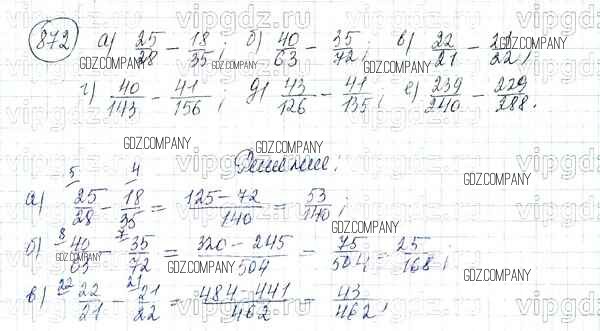 872 а) 25/28 − 18/35; б) 40/63 − 35/72; в) 22/21 − 21/22;
г) 40/143 − 41/156; д) 43/126 − 41/135; е) 239/240 − 229/288.
Решение:
а) 25/28 − 18/35 = 125−72/140 = 53/140;
б) 40/63 − 35/72 = 320−245/504 = 75/504 = 25/168;
в) 22/21 − 21/22 = 484−441/462 = 43/462;